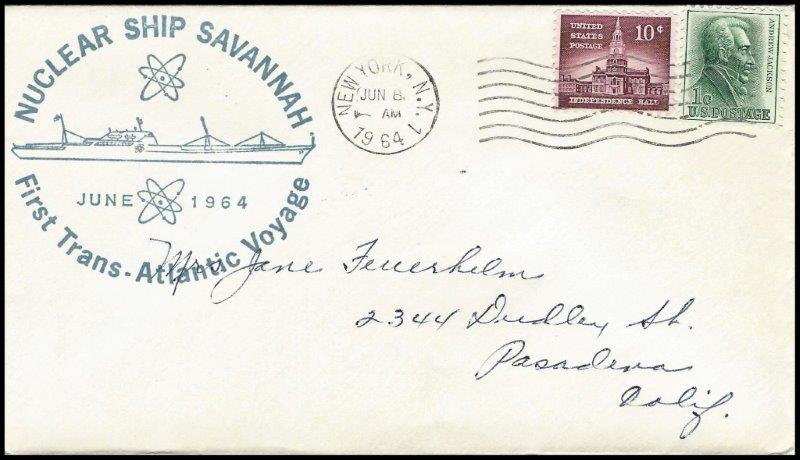 NUCLEAR SHIP SAVANNAH
JUNE 1964
First Trans-Atlantic Voyage
NEW YORK, N.Y. 1
JUN 8
AM
1964
UNITED
STATES
POSTAGE
10¢
INDEPENDENCE HALL
ANDREW JACKSON
1¢
U.S. POSTAGE
Mrs Jane Feuerhelm
2344 Dudley St.
Pasadena
Calif.